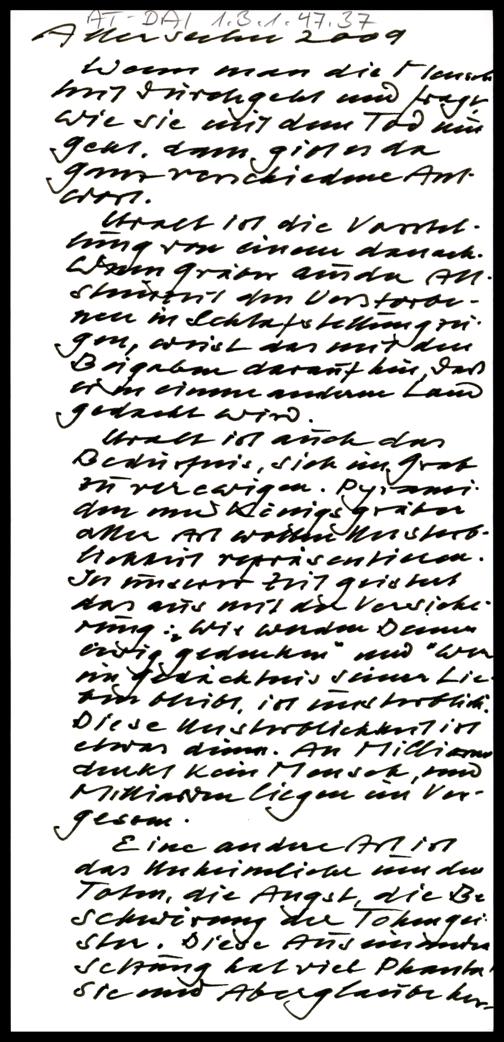 AT-DAI 1.3.1.47.37
Allerseelen 2009
Wenn man die Mensch
heit durchgeht und fragt
wie sie mit dem Tod um
geht, dann gibt es da
ganz verschiedene Ant-
wort.
Uralt ist die Vorstel-
lung von einem danach.
Wenn Gräber aus der Alt-
steinzeit den Verstorbe-
nen in Schlafstellung zei-
gen, weist das mit den
Beigaben darauf hin, daß
er in einem anderen Land
gedacht wird.
Uralt ist auch das
Bedürfnis, sich im Grab
zu verewigen. Pyrami-
den und Königsgräber
aller Art wollen Unsterb-
lichkeit repräsentieren.
In unserer Zeit geistert
das aus mit der Versiche-
rung: „Wir werden Deiner
ewig gedenken" und "Wer
im Gedächtnis seiner Lie-
ben bleibt, ist unsterblich.
Diese Unsterblichkeit ist
etwas dünn. An Millionen
denkt kein Mensch, und
Milliarden liegen im Ver-
gessen.
Eine andere Art ist
das Unheimliche um den
Toten, die Angst, die Be
schwörung der Totengei
ster. Diese Auseinander
setzung hat viel Phanta-
sie und Aberglaube her-